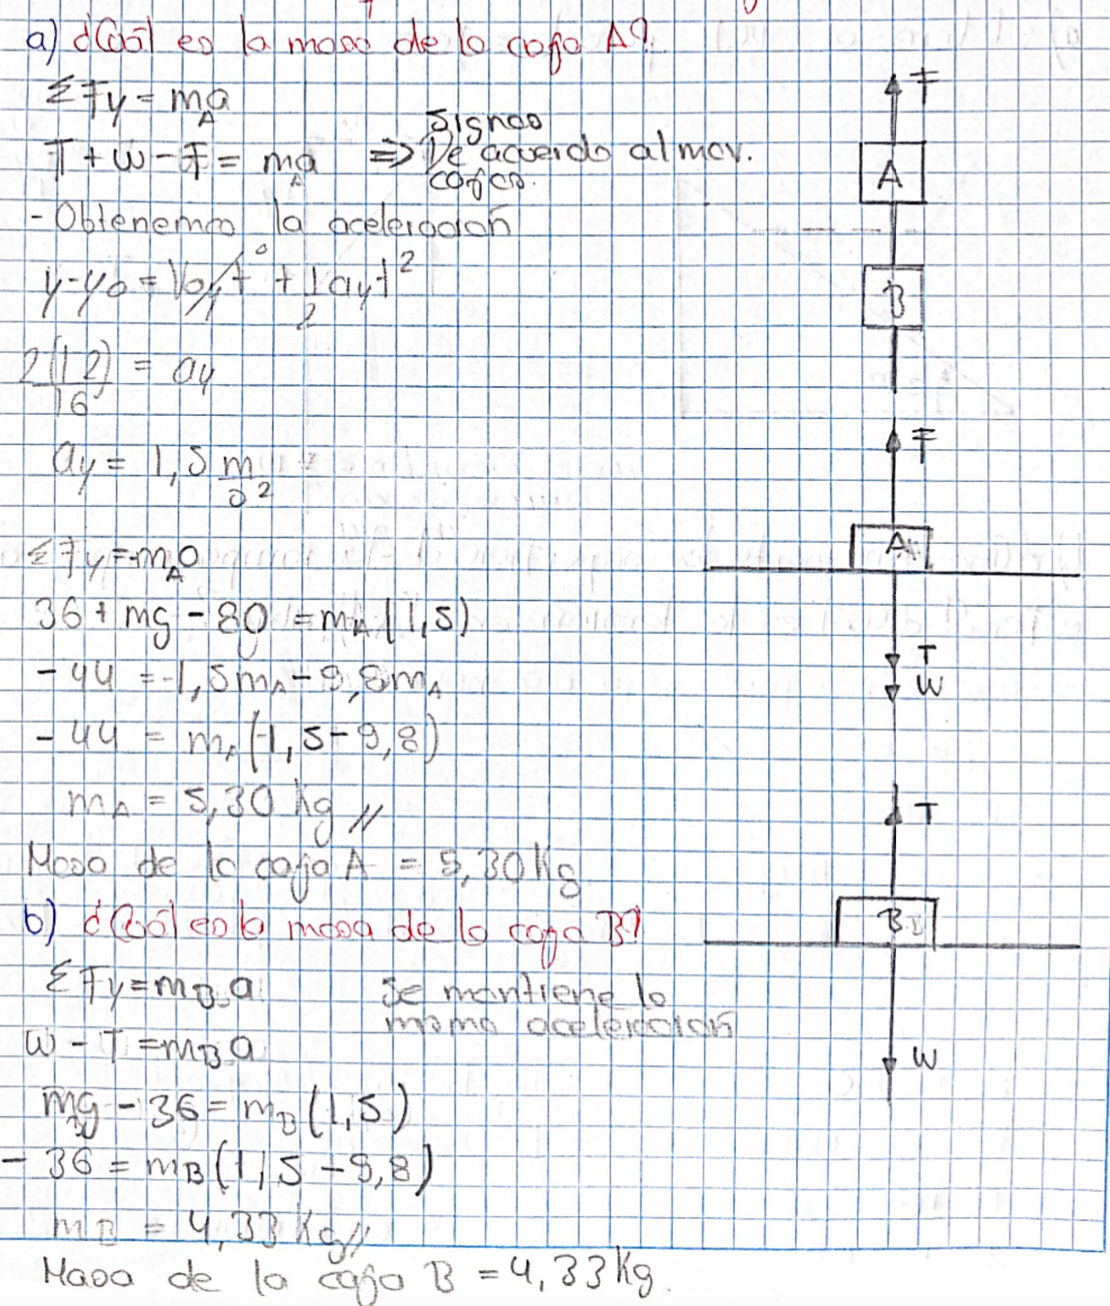 a) ¿Cuál es la masa de la caja A?
ΣFy = m_A a
T + w - F = m_A a ⇒ Signos De acuerdo al mov. cajas.
- Obtenemos la aceleración
y - y0 = V0/t⁰ + 1/2 ay t²
2(12)/16 = ay
ay = 1,5 m/s²
ΣFy = m_A a
36 + mg - 80 = m_A (1,5)
- 44 = 1,5m_A - 9,8m_A
- 44 = m_A (1,5 - 9,8)
m_A = 5,30 Kg //
Masa de la caja A = 5,30 Kg
b) ¿Cuál es la masa de la caja B?
ΣFy = m_B a Se mantiene la misma aceleración
w - T = m_B a
m_B g - 36 = m_B (1,5)
- 36 = m_B (1,5 - 9,8)
m_B = 4,33 Kg //
Masa de la caja B = 4,33 Kg.
F
A
B
F
A
T
W
T
B
W